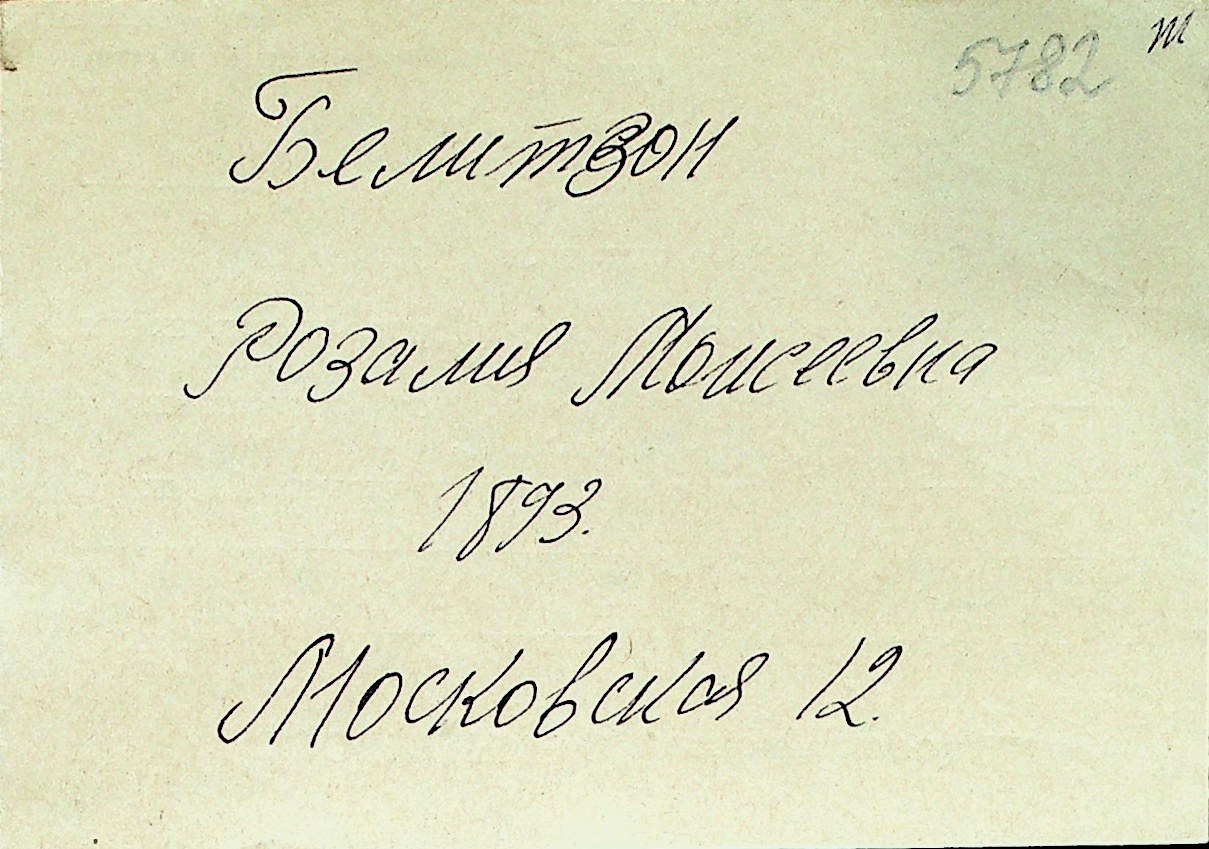 5782 т
Белитзон
Розалия Моисеевна
1893.
Московская 12.